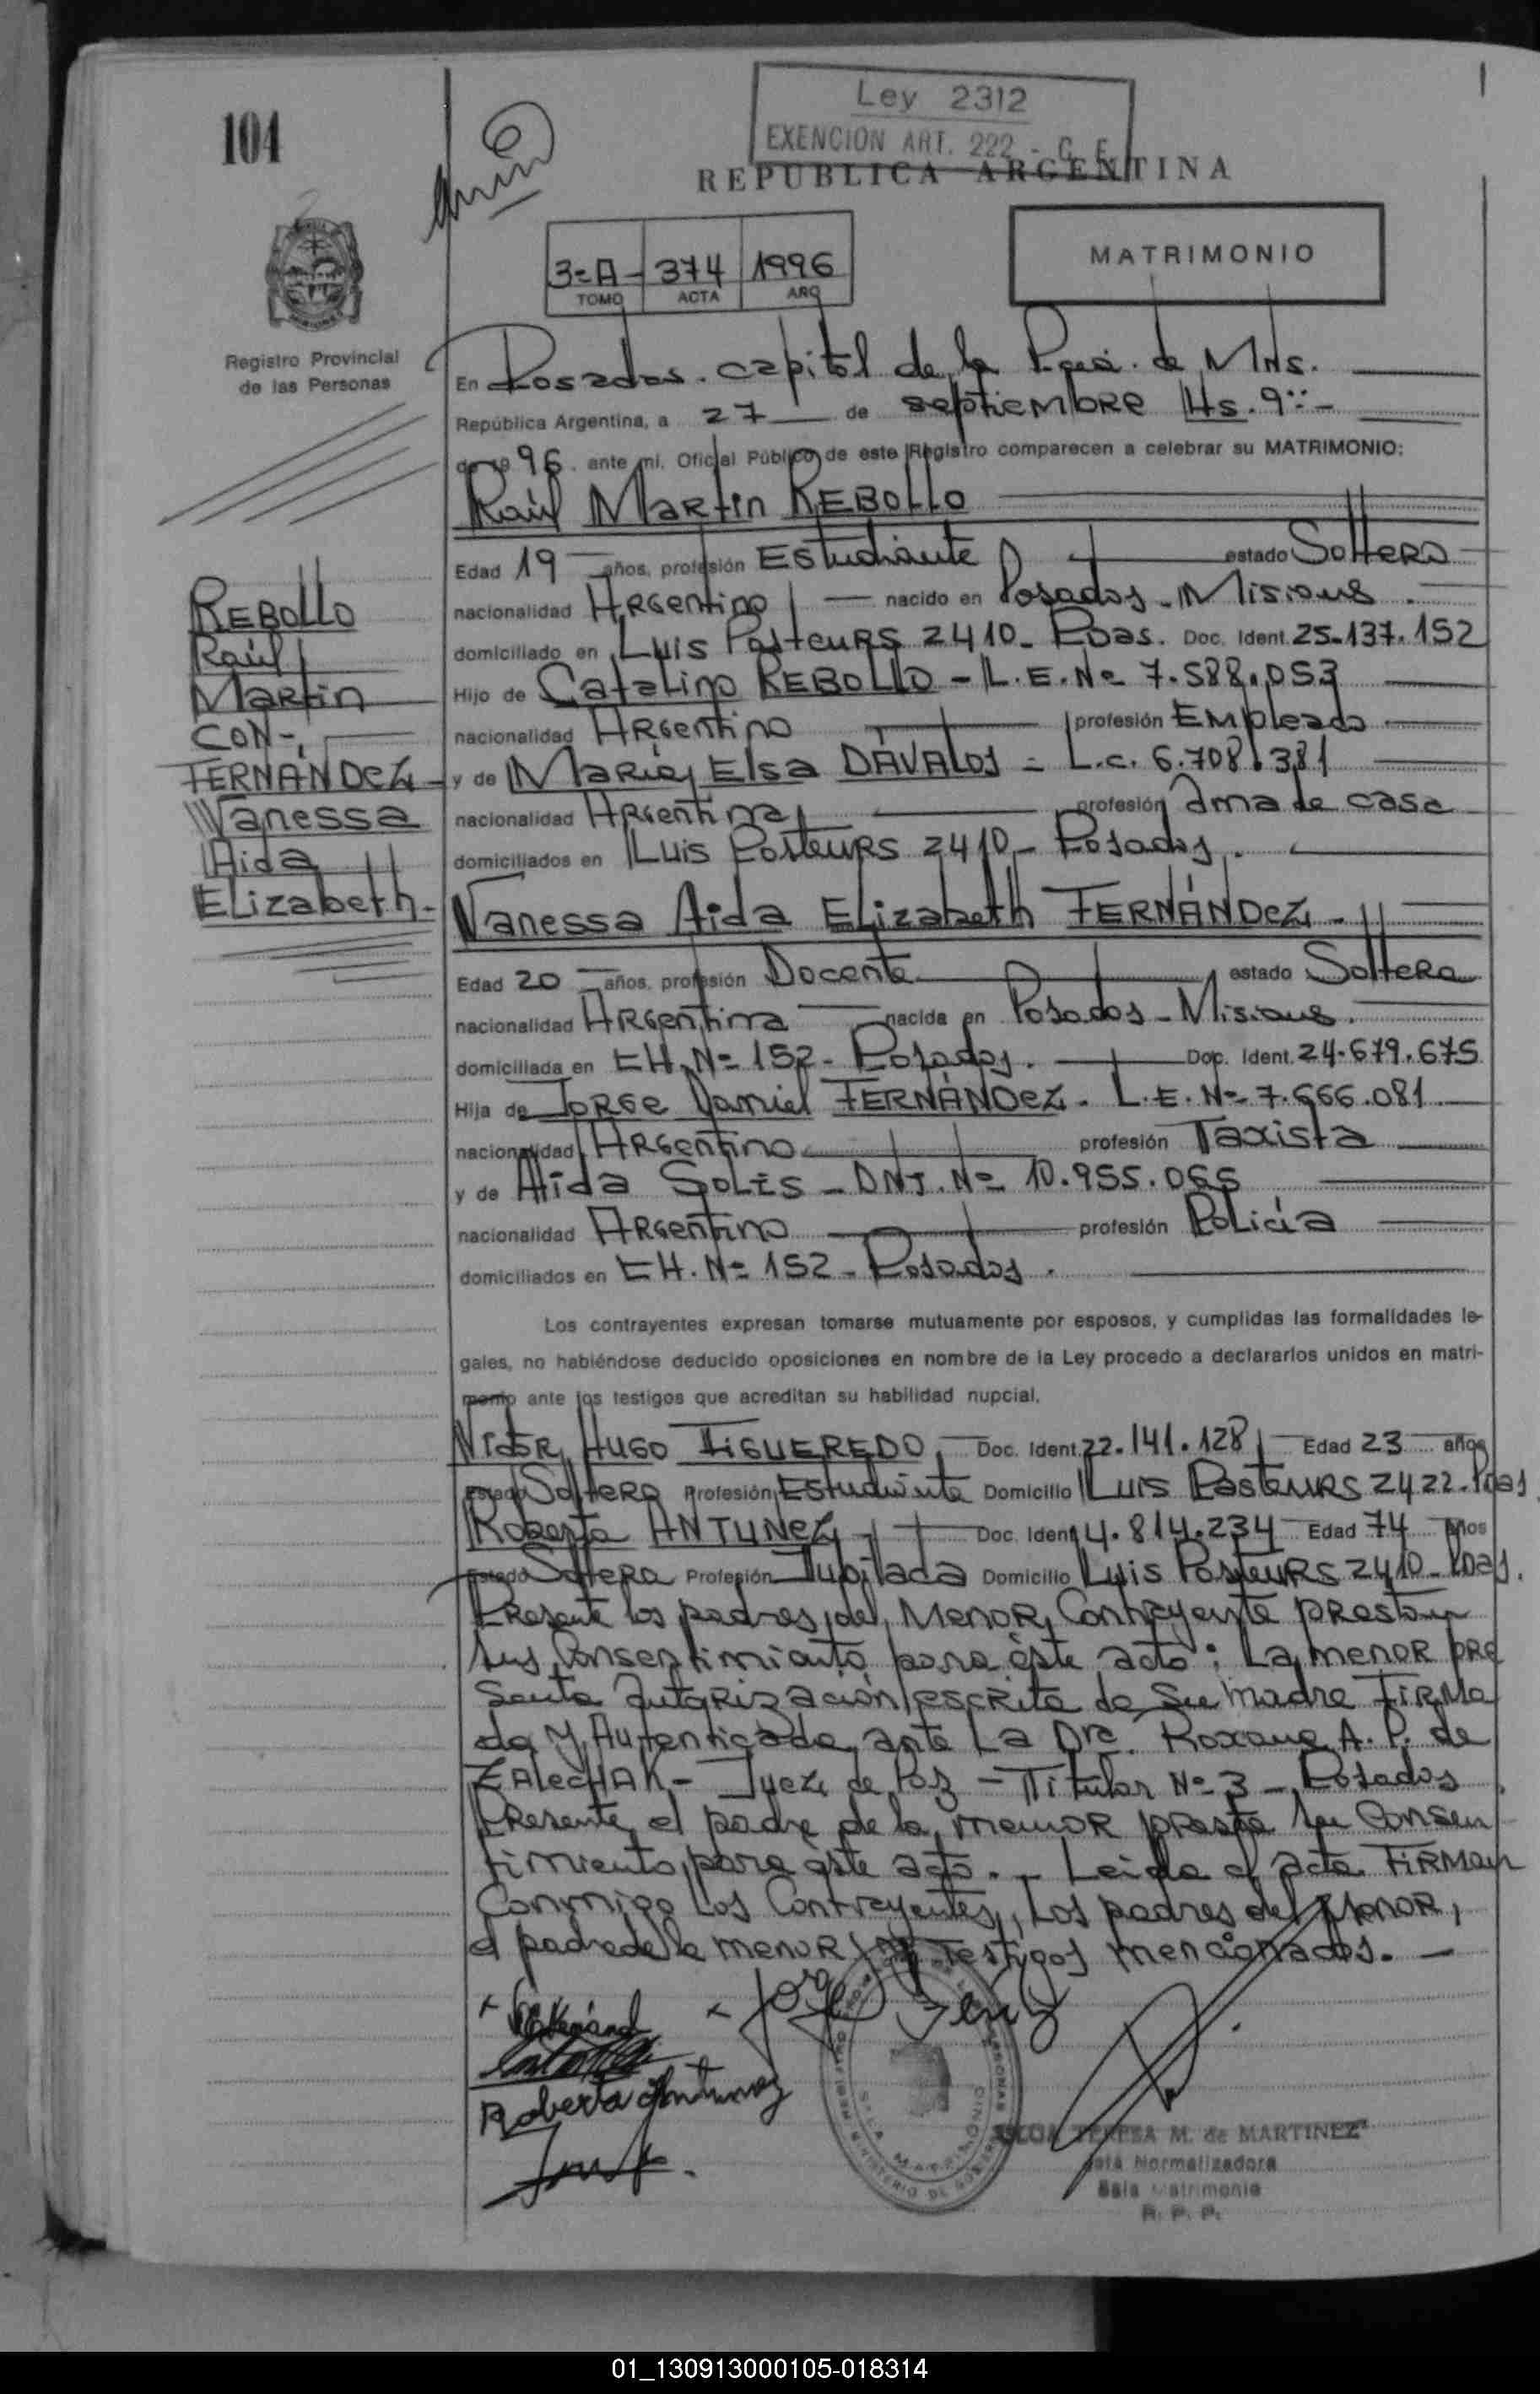 104
Ley 2312
EXENCION ART. 222 - C. F.
REPUBLICA ARGENTINA
3=A- 374 1996
TOMO ACTA AÑO
MATRIMONIO
Registro Provincial
de las Personas
En Posadas. capital de la Pcia. de Mns.
República Argentina, a 27 de septiembre Hs. 9:-
de 19 96. ante mi, Oficial Público de este Registro comparecen a celebrar su MATRIMONIO:
Raúl Martin REBOLLO
Edad 19 años, profesión Estudiante estado Soltero
nacionalidad Argentino nacido en Posadas - Misiones.
domiciliado en Luis Pasteurs 2410- Pdas. Doc. Ident. 25-137.152
Hijo de Catalino REBOLLO - L.E. Nº 7.588.053
nacionalidad Argentino profesión Empleado
y de Maria Elsa DÁVALOS - L.c. 6.708.381
nacionalidad Argentina profesión ama de casa
domiciliados en Luis Posteurs 2410- Posadas.
REBOLLO
Raúl
Martin
CON-
FERNÁNDEZ-
Vanessa
Aida
Elizabeth-
Vanessa Aida Elizabeth FERNÁNDEZ-
Edad 20 años, profesión Docente estado Soltera
nacionalidad Argentina nacida en Posadas - Misiones.
domiciliada en CH. Nº 152- Posadas. Doc. Ident. 24-679.675
Hija de Jorge Daniel FERNÁNDEZ- L.E. Nº 7.666.081
nacionalidad Argentino profesión Taxista
y de Aida SOLIS - DNI. Nº 10.955.055
nacionalidad Argentino profesión Policía
domiciliados en CH. Nº 152- Posadas.
Los contrayentes expresan tomarse mutuamente por esposos, y cumplidas las formalidades le-
gales, no habiéndose deducido oposiciones en nombre de la Ley procedo a declararlos unidos en matri-
monio ante los testigos que acreditan su habilidad nupcial.
Victor Hugo FIGUEREDO Doc. Ident. 22.141.128 Edad 23 años
Estado Soltero Profesión Estudiante Domicilio Luis Pasteurs 2422-Pdas
Roberta ANTUNEZ Doc. Ident 4.814.234 Edad 74 años
Estado Soltera Profesión Jubilada Domicilio Luis Pasteurs 2410-Pdas.
Presente los padres del Menor Contrayente prestan
sus Consentimiento para éste acto; La menor pre
senta autorización escrita de su madre FIRMa
da y Autenticada ante La Dra. Roxana A. P. de
ZALECHAK- Juez de Paz - Titular Nº 3 - Posadas
Presente el padre de la menor presta su Consen
timiento para éste acto. - Leida el acta FIRMan
Conmigo Los Contrayentes, Los padres del menor,
el padre de la menor y testigos mencionados. -
Roberta Antunez
OLGA TERESA M. de MARTINEZ
Jefa Normalizadora
Sala Matrimonio
R. P. P.
01_130913000105-018314